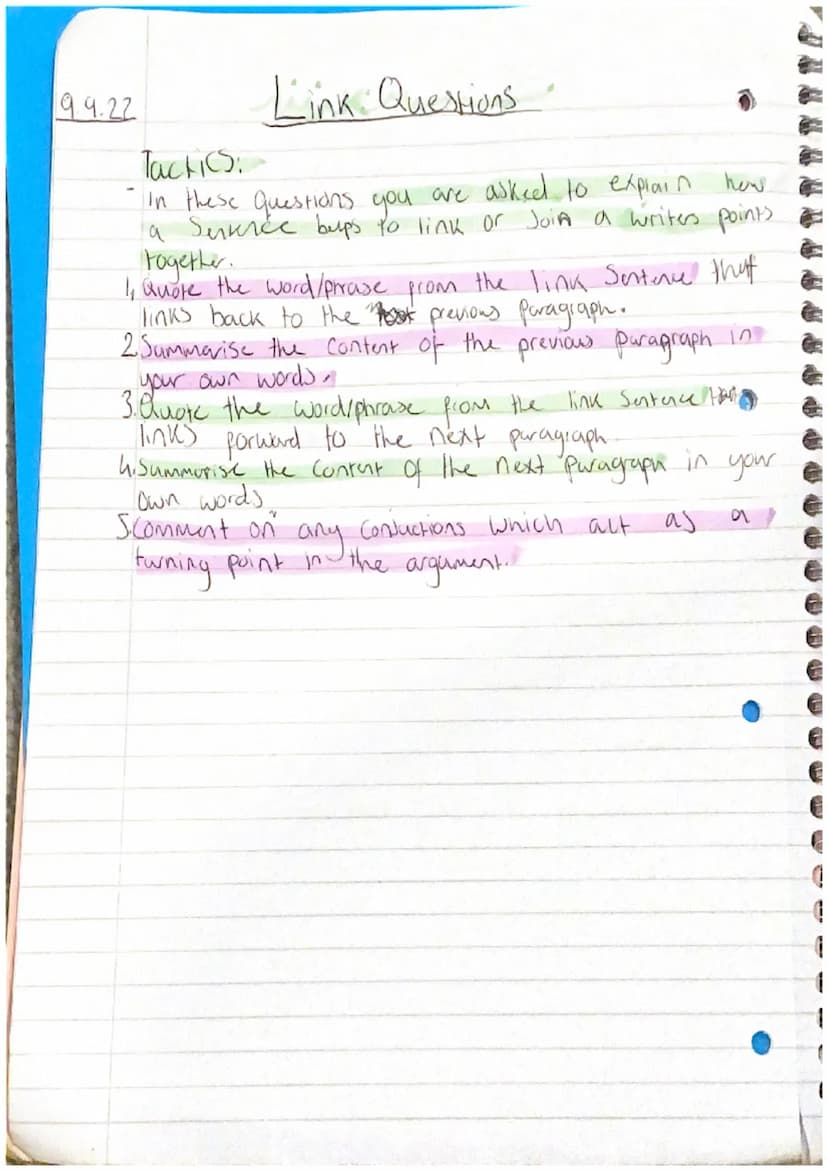 9.9.22
Link Questions
Tactics:
- In these Questions you are asked to explain how
a Sentence helps to link or Join a writers points
together.
1, Quote the word/phrase from the link Sentence that
links back to the previous Paragraph.
2. Summarise the content of the previous Paragraph in
your own words.
3. Quote the word/phrase from the link Sentence that
links forward to the next paragraph
4. Summarise the Content of the next Paragraph in your
own words
5. Comment on any Conjuctions which act as a
turning point in the argument.